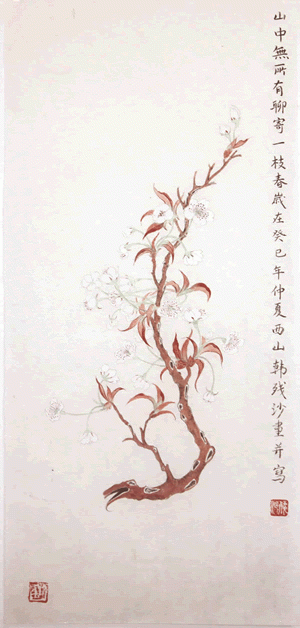 山中無所有聊寄一枝春歲在癸巳年仲夏西山韩残沙画并寫